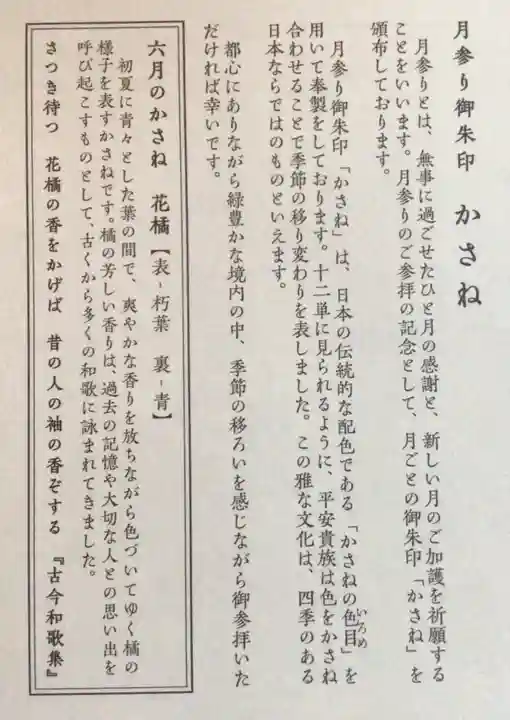 月参り御朱印　かさね
月参りとは、無事に過ごせたひと月の感謝と、新しい月のご加護を祈願する
ことをいいます。月参りのご参拝の記念として、月ごとの御朱印「かさね」を
頒布しております。
月参り御朱印「かさね」は、日本の伝統的な配色である「かさねの色目」を
いろめ
用いて奉製をしております。十二単に見られるように、平安貴族は色をかさね
合わせることで季節の移り変わりを表しました。この雅な文化は、四季のある
日本ならではのものといえます。
都心にありながら緑豊かな境内の中、季節の移ろいを感じながら御参拝いた
だければ幸いです。
六月のかさね　花橘【表-朽葉　裏-青】
初夏に青々とした葉の間で、爽やかな香りを放ちながら色づいてゆく橘の
様子を表すかさねです。橘の芳しい香りは、過去の記憶や大切な人との思い出を
呼び起こすものとして、古くから多くの和歌に詠まれてきました。
さつき待つ　花橘の香をかげば　昔の人の袖の香ぞする　『古今和歌集』